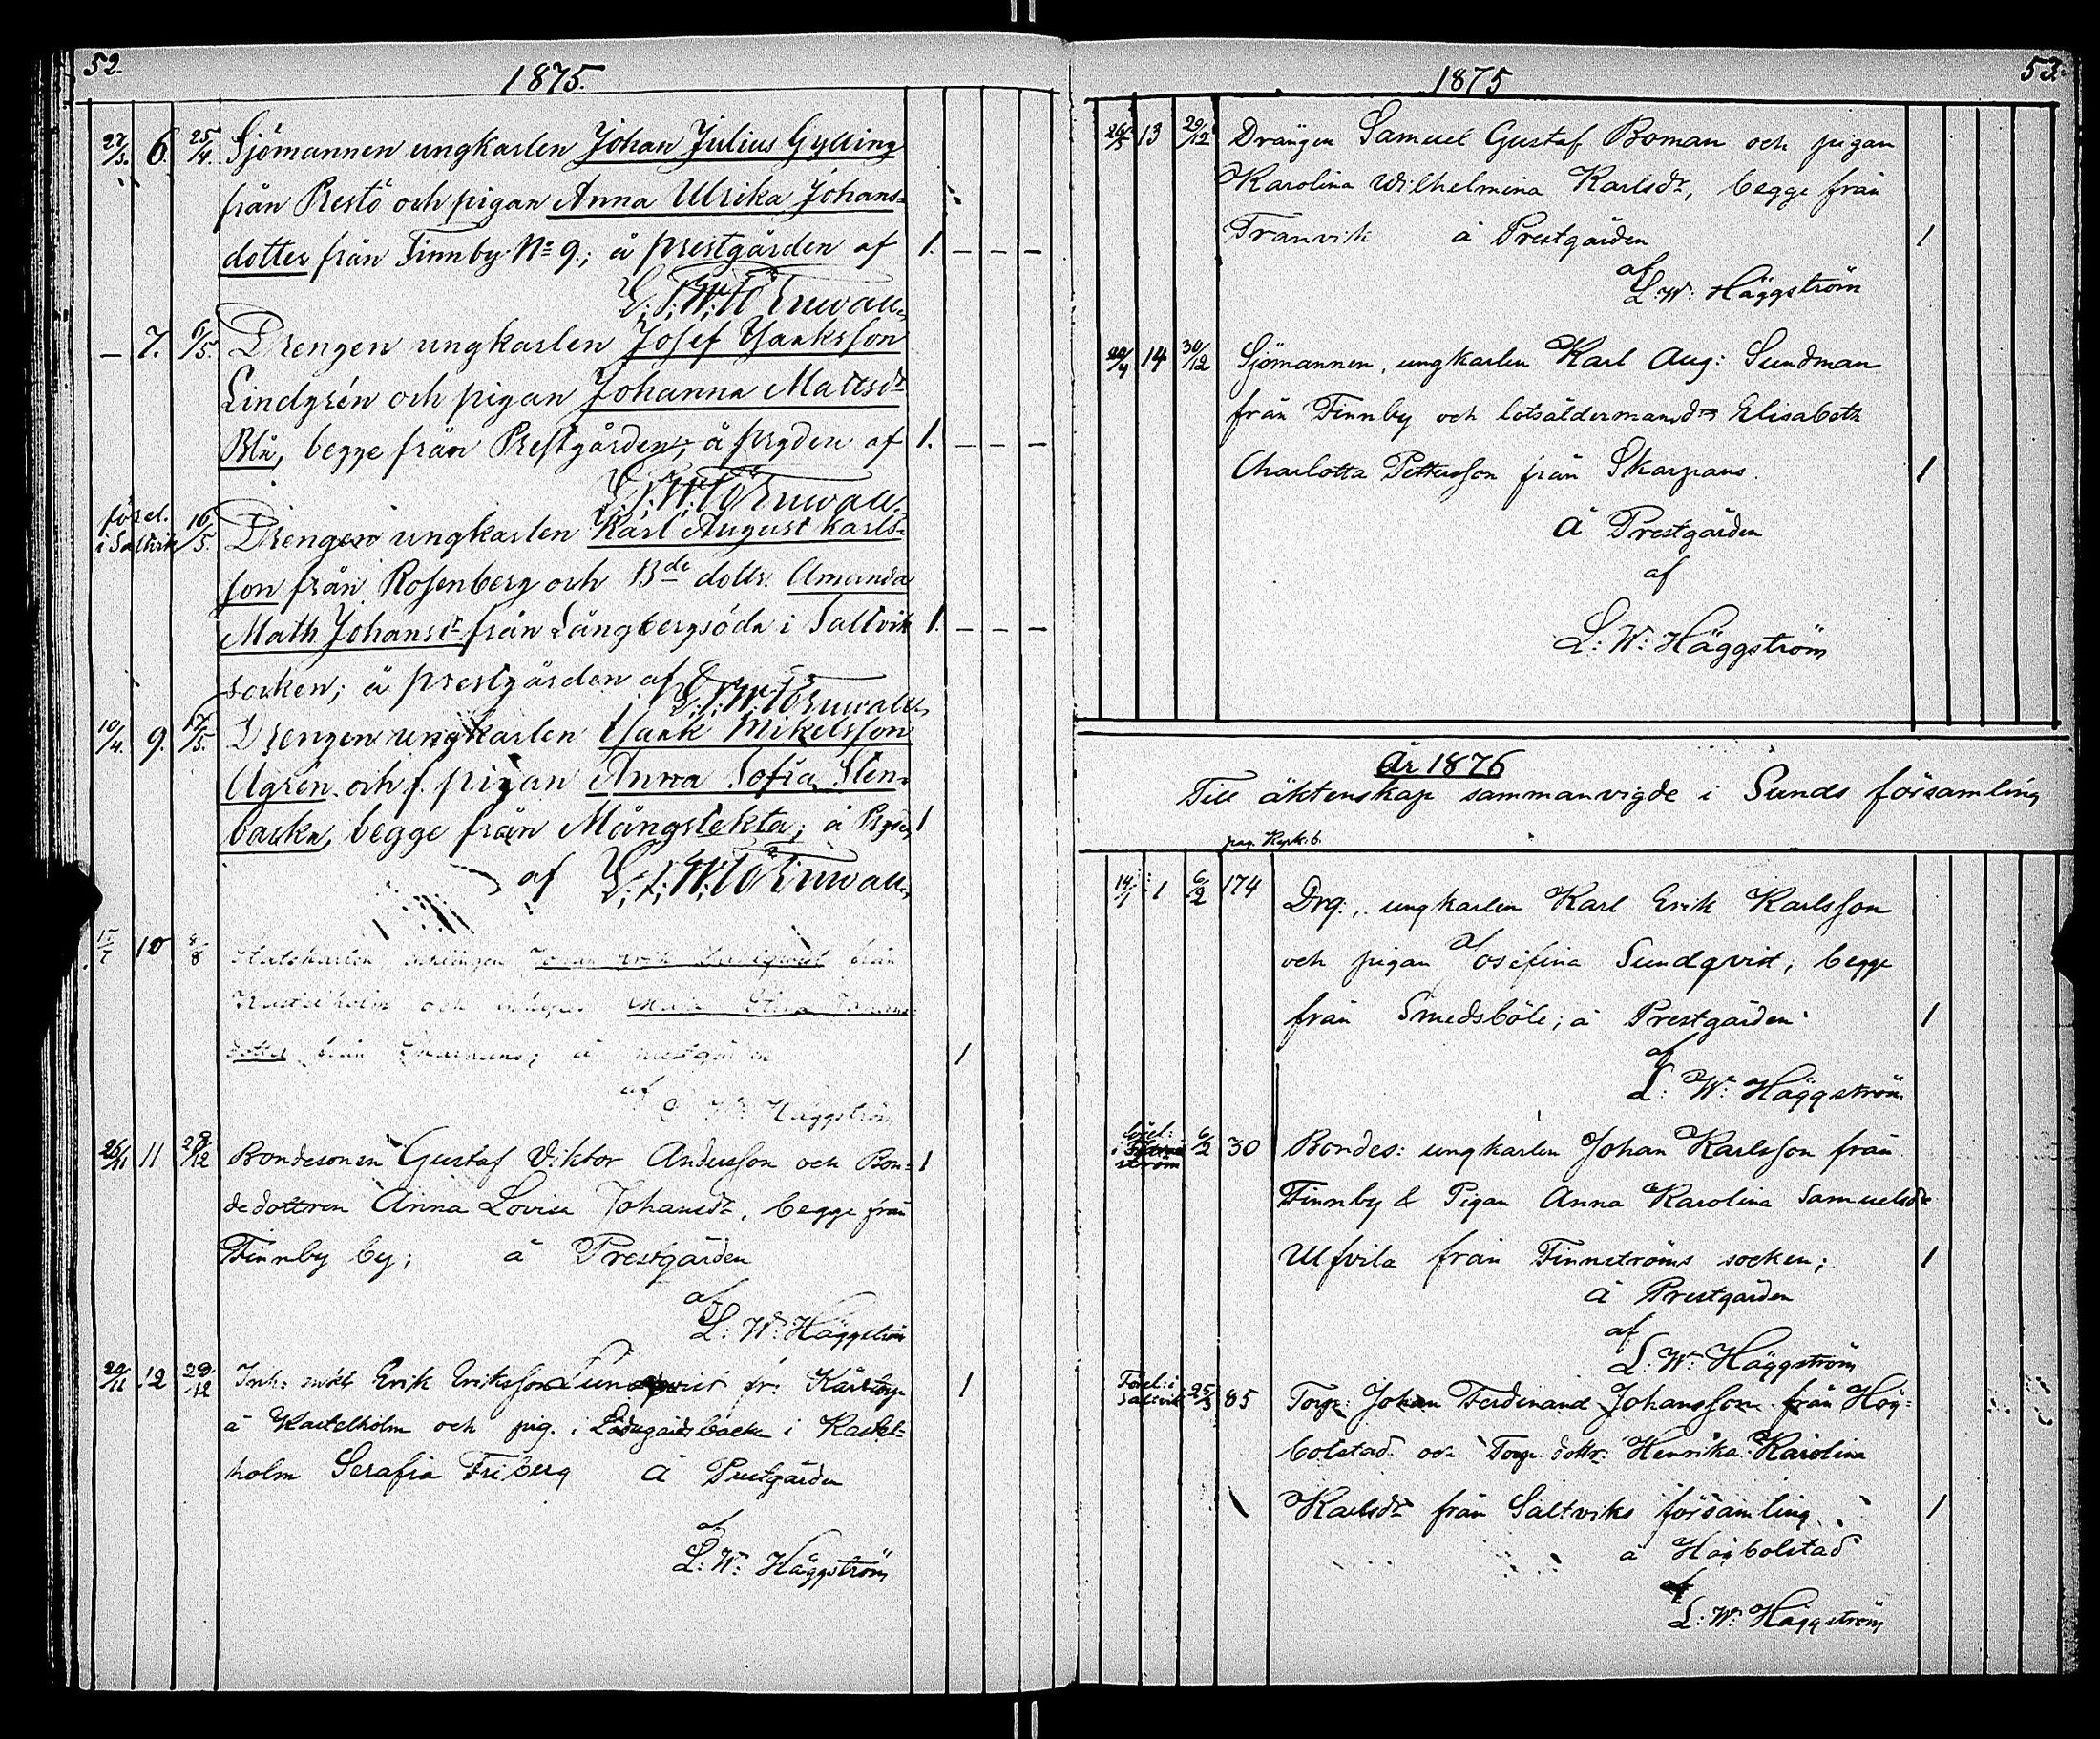 52.
1875.
27/3. 6. 25/4. Sjömannen ungkarlen Johan Julius Gylling
från Prestö och pigan Anna Ulrika Johans-
dotter från Finnby No 9.; å prestgården af 1. – – –
– 7. 6/5. Drengen ungkarlen Josef Isaksson
Lindgrén och pigan Johanna Mattsdr
Blå, begge från Prestgården; å prgden af 1. – – –
förel. i Saltvik 16/5. Drengen ungkarlen Karl August Karls-
son från Rosenberg och Bde dottr. Amanda
Math. Johansdr från Långbergsöda i Saltvik 1. – – –
socken; å prestgården af
10/4. 9. 17/5. Drengen ungkarlen Isaak Mikelsson
Ågrén och f. pigan Anna Sofia Sten-
backa, begge från Mångstekta; å 1
af
10 8/8 Johan Erik
Kastelholm och
dotter från å prestgården 1
af
W: Häggström
26/11 11 28/12 Bondesonen Gustaf Viktor Andersson och Bon- 1
dedottren Anna Lovisa Johansdr, begge från
Finnby by; å Prestgården
af
L: W: Häggström
12 29/12 Inh: Erik Eriksson fr:
å Kastelholm och pig. i Ladugårdsbacka i Kastel-
holm Serafia Friberg å Prestgården
af
L: W: Häggström
53.
1875
13 29/12 Drängen Samuel Gustaf Boman och pigan
Karolina Wilhelmina Karlsdr, begge från
Tranvik å Prestgården 1
af
L: W: Häggström
14 30/12 Sjömannen, ungkarlen Karl Aug: Sundman
från Finnby och lotsåldermansdr Elisabeth
Charlotta Pettersson från Skarpans. 1
å Prestgården
af
L: W: Häggström
År 1876
Till äktenskap sammanvigde i Sunds församling
14/1 1 6/2 174 Drg., ungkarlen Karl Erik Karlsson
och pigan Josefina Sundqvist, begge
från Smedsböle; å Prestgården 1
af
L: W: Häggström
förel: i ström 6/2 30 Bondes: ungkarlen Johan Karlsson från
Finnby & Pigan Anna Karolina Samuelsdr
Ulfvila från Finnströms socken; 1
å Prestgården
af
L: W: Häggström
Förel: i Saltvik 25/3 85 Torp: Johan Ferdinand Johansson från Hög-
bolstad och Torp: dottr: Henrika Karolina
Karlsdr från Saltviks församling 1
å Högbolstad
af
L: W: Häggström